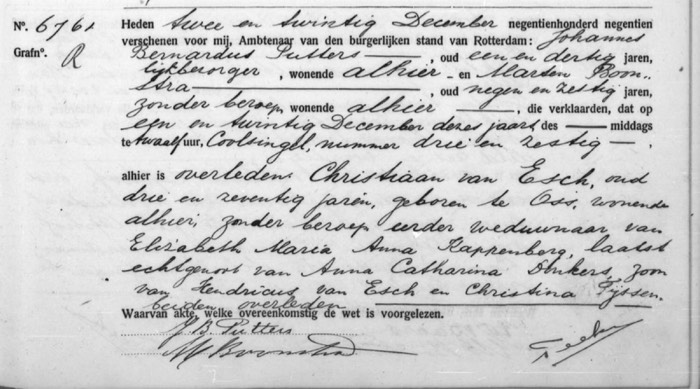 No. 676. Heden twee en twintig December negentienhonderd negentien
Grafno. verschenen voor mij, Ambtenaar van den burgerlijken stand van Rotterdam: Johannes
R Bernardus Putters, oud een en dertig jaren,
lijkbezorger, wonende alhier en Marten Boon-
stra, oud negen en zestig jaren,
zonder beroep, wonende alhier, die verklaarden, dat op
een en twintig December dezes jaars, des middags
te twaalf uur, Coolsingel, nummer drie en zestig
alhier is overleden: Christiaan van Esch, oud
drie en zeventig jaren, geboren te Oss, wonende
alhier, zonder beroep, eerder weduwnaar van
Elizabeth Maria Anna Kappenberg, laatst
echtgenoot van Anna Catharina, zoon
van Hendricus van Esch en Christina Tijssen,
beiden overleden
Waarvan akte, welke overeenkomstig de wet is voorgelezen.
J.B. Putters
M Boonstra